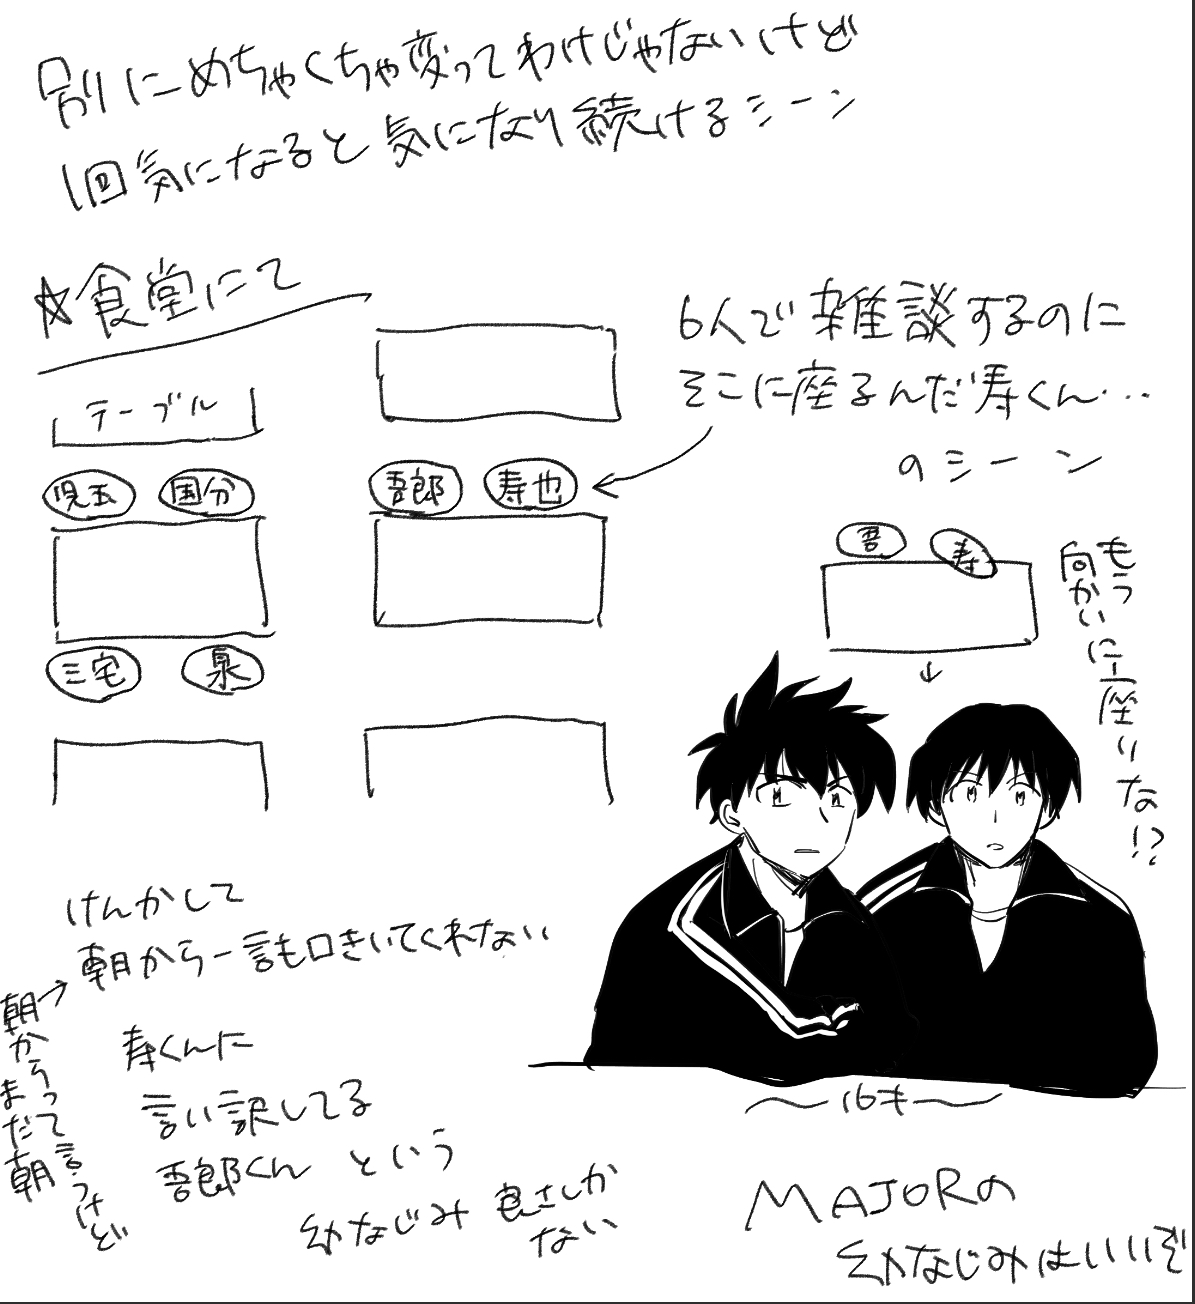 別にめちゃくちゃ変ってわけじゃないけど
1回気になると気になり続けるシーン
☆食堂にて
テーブル
児玉
国分
吾郎
寿也
三宅
泉
6人で雑談するのに
そこに座るんだ寿くん…
のシーン
吾
寿
もう
向かいに座りな!?
けんかして
朝から一言も口きいてくれない
寿くんに
言い訳してる
吾郎くん という
幼なじみ 良さしか
ない
朝からって言うけど
まだ朝
〜16才〜
MAJORの
幼なじみはいいぞ